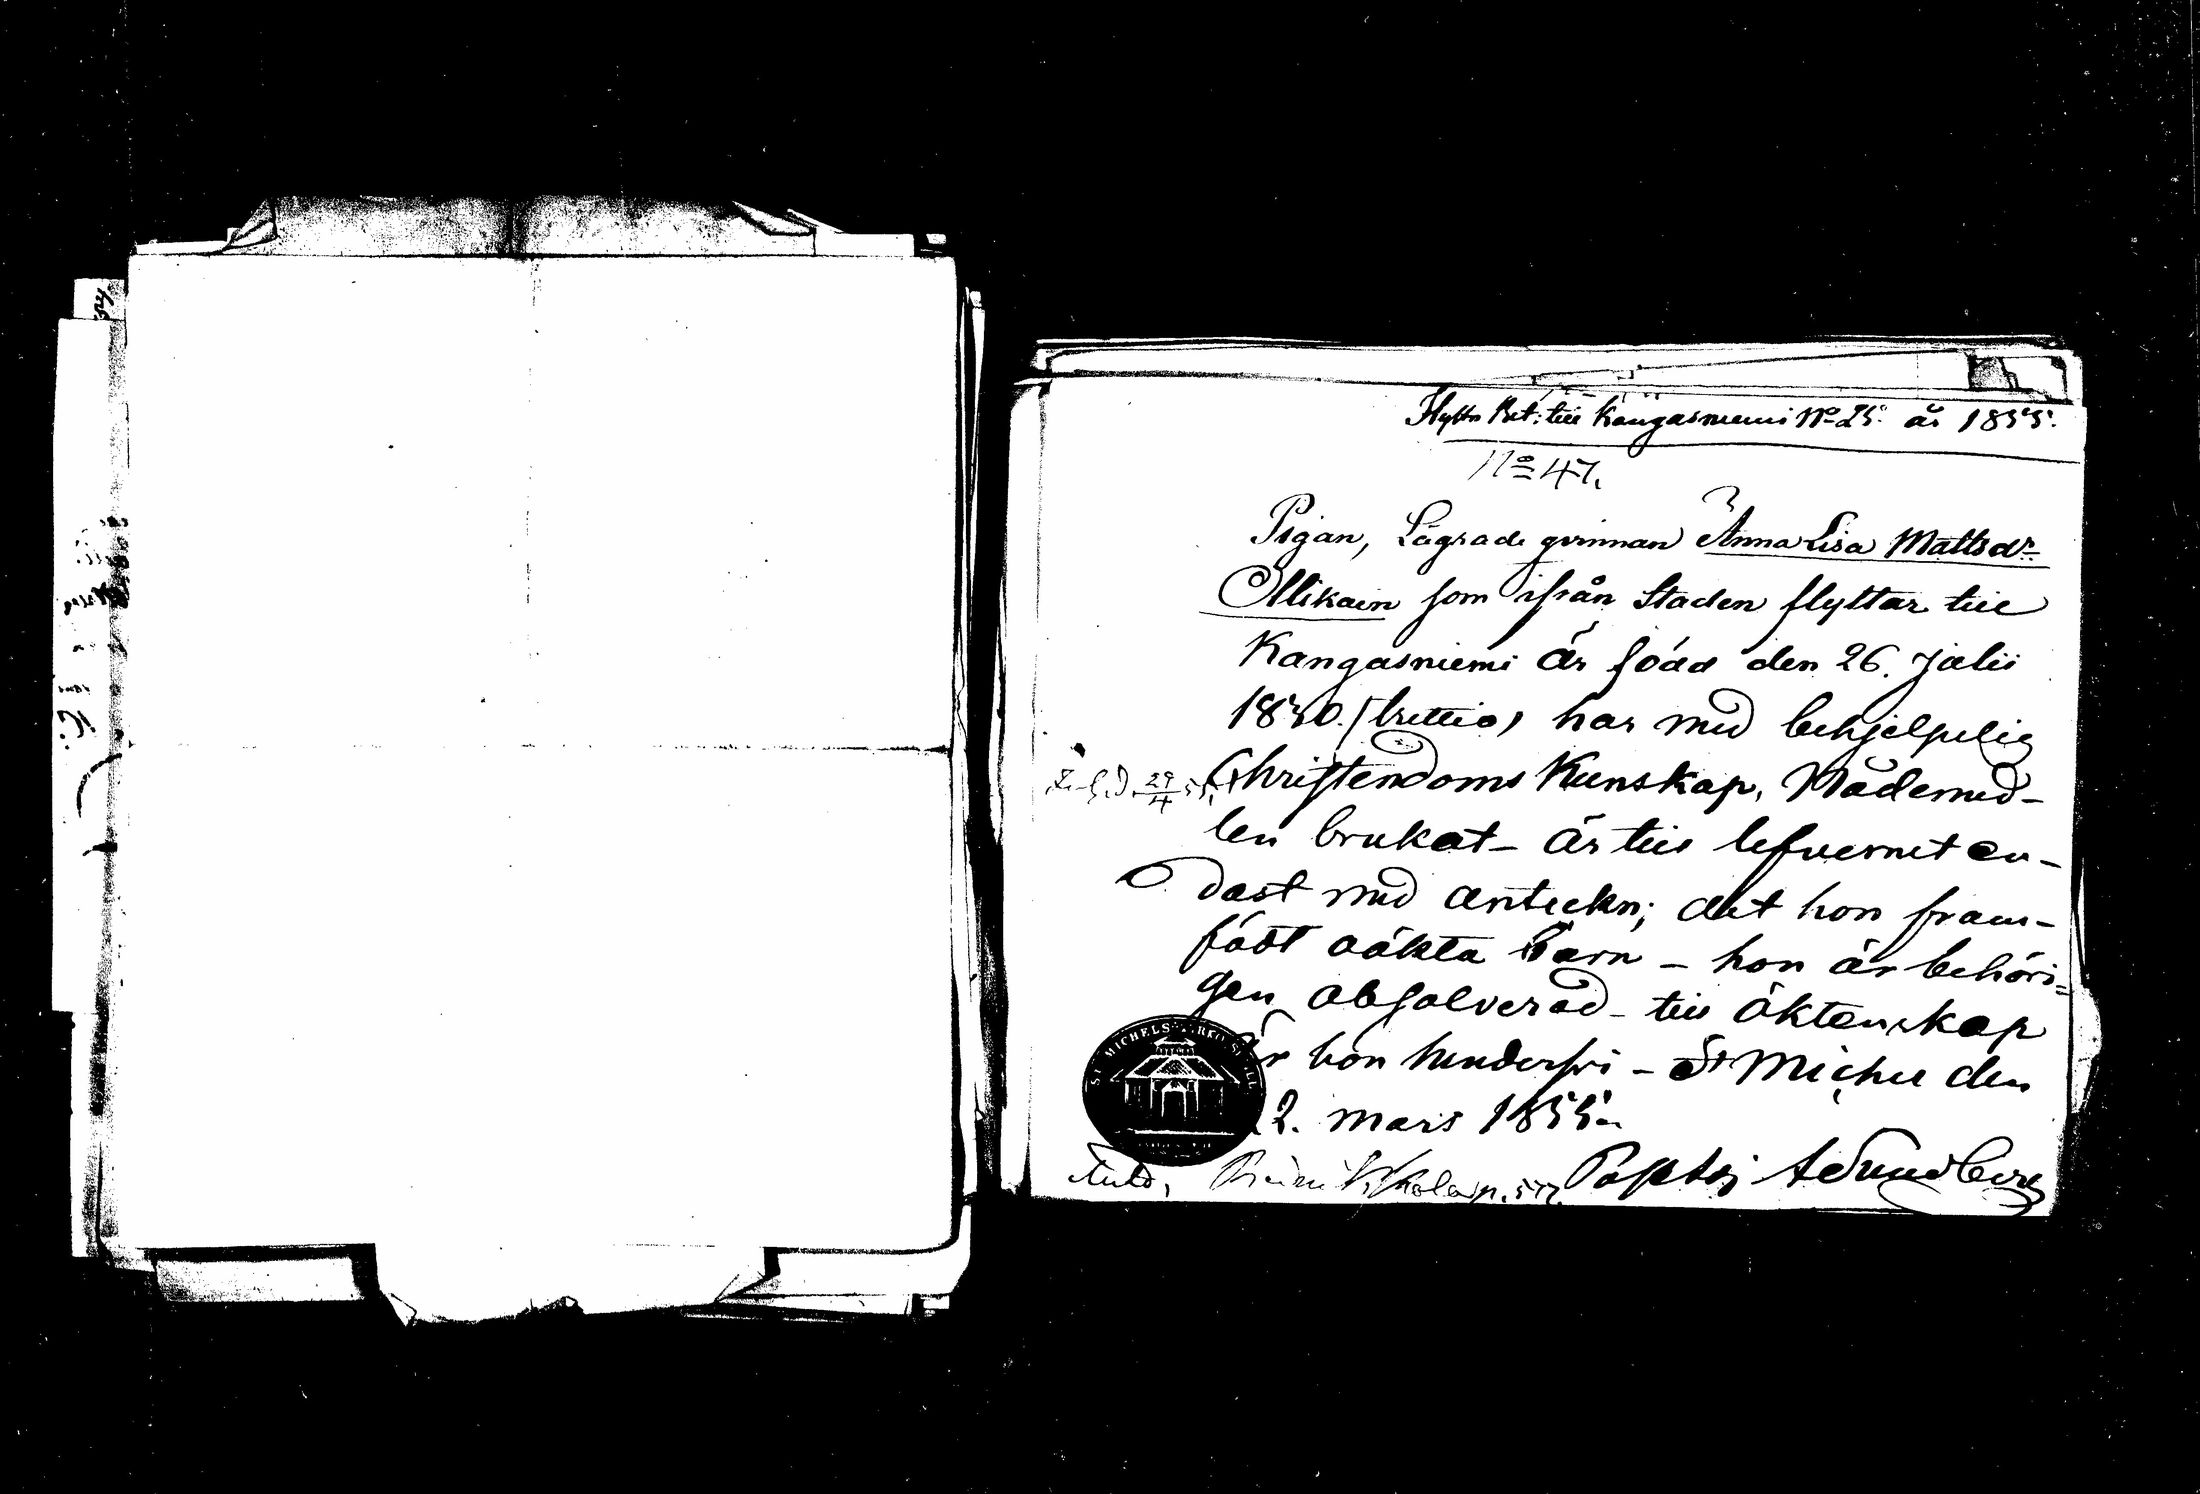 Flyttn Bet: till Kangasniemi No 25. år 1855.
No 47.
Pigan, Lägrade qvinnan Anna Lisa Mattsdr
Ollikain som ifrån Staden flyttar till
Kangasniemi är född den 26. Julii
1830. (trettio) har med behjelpelig
Christendoms Kunskap, Nådemed-
len brukat - är till lefvernet en-
dast med anteckn; att hon fram-
födt oäkta Barn - hon är behöri-
gen absolverad - till äktenskap
är hon hinderfri - St Michel den
2. Mars 1855.
29/4 55.
ST MICHELS